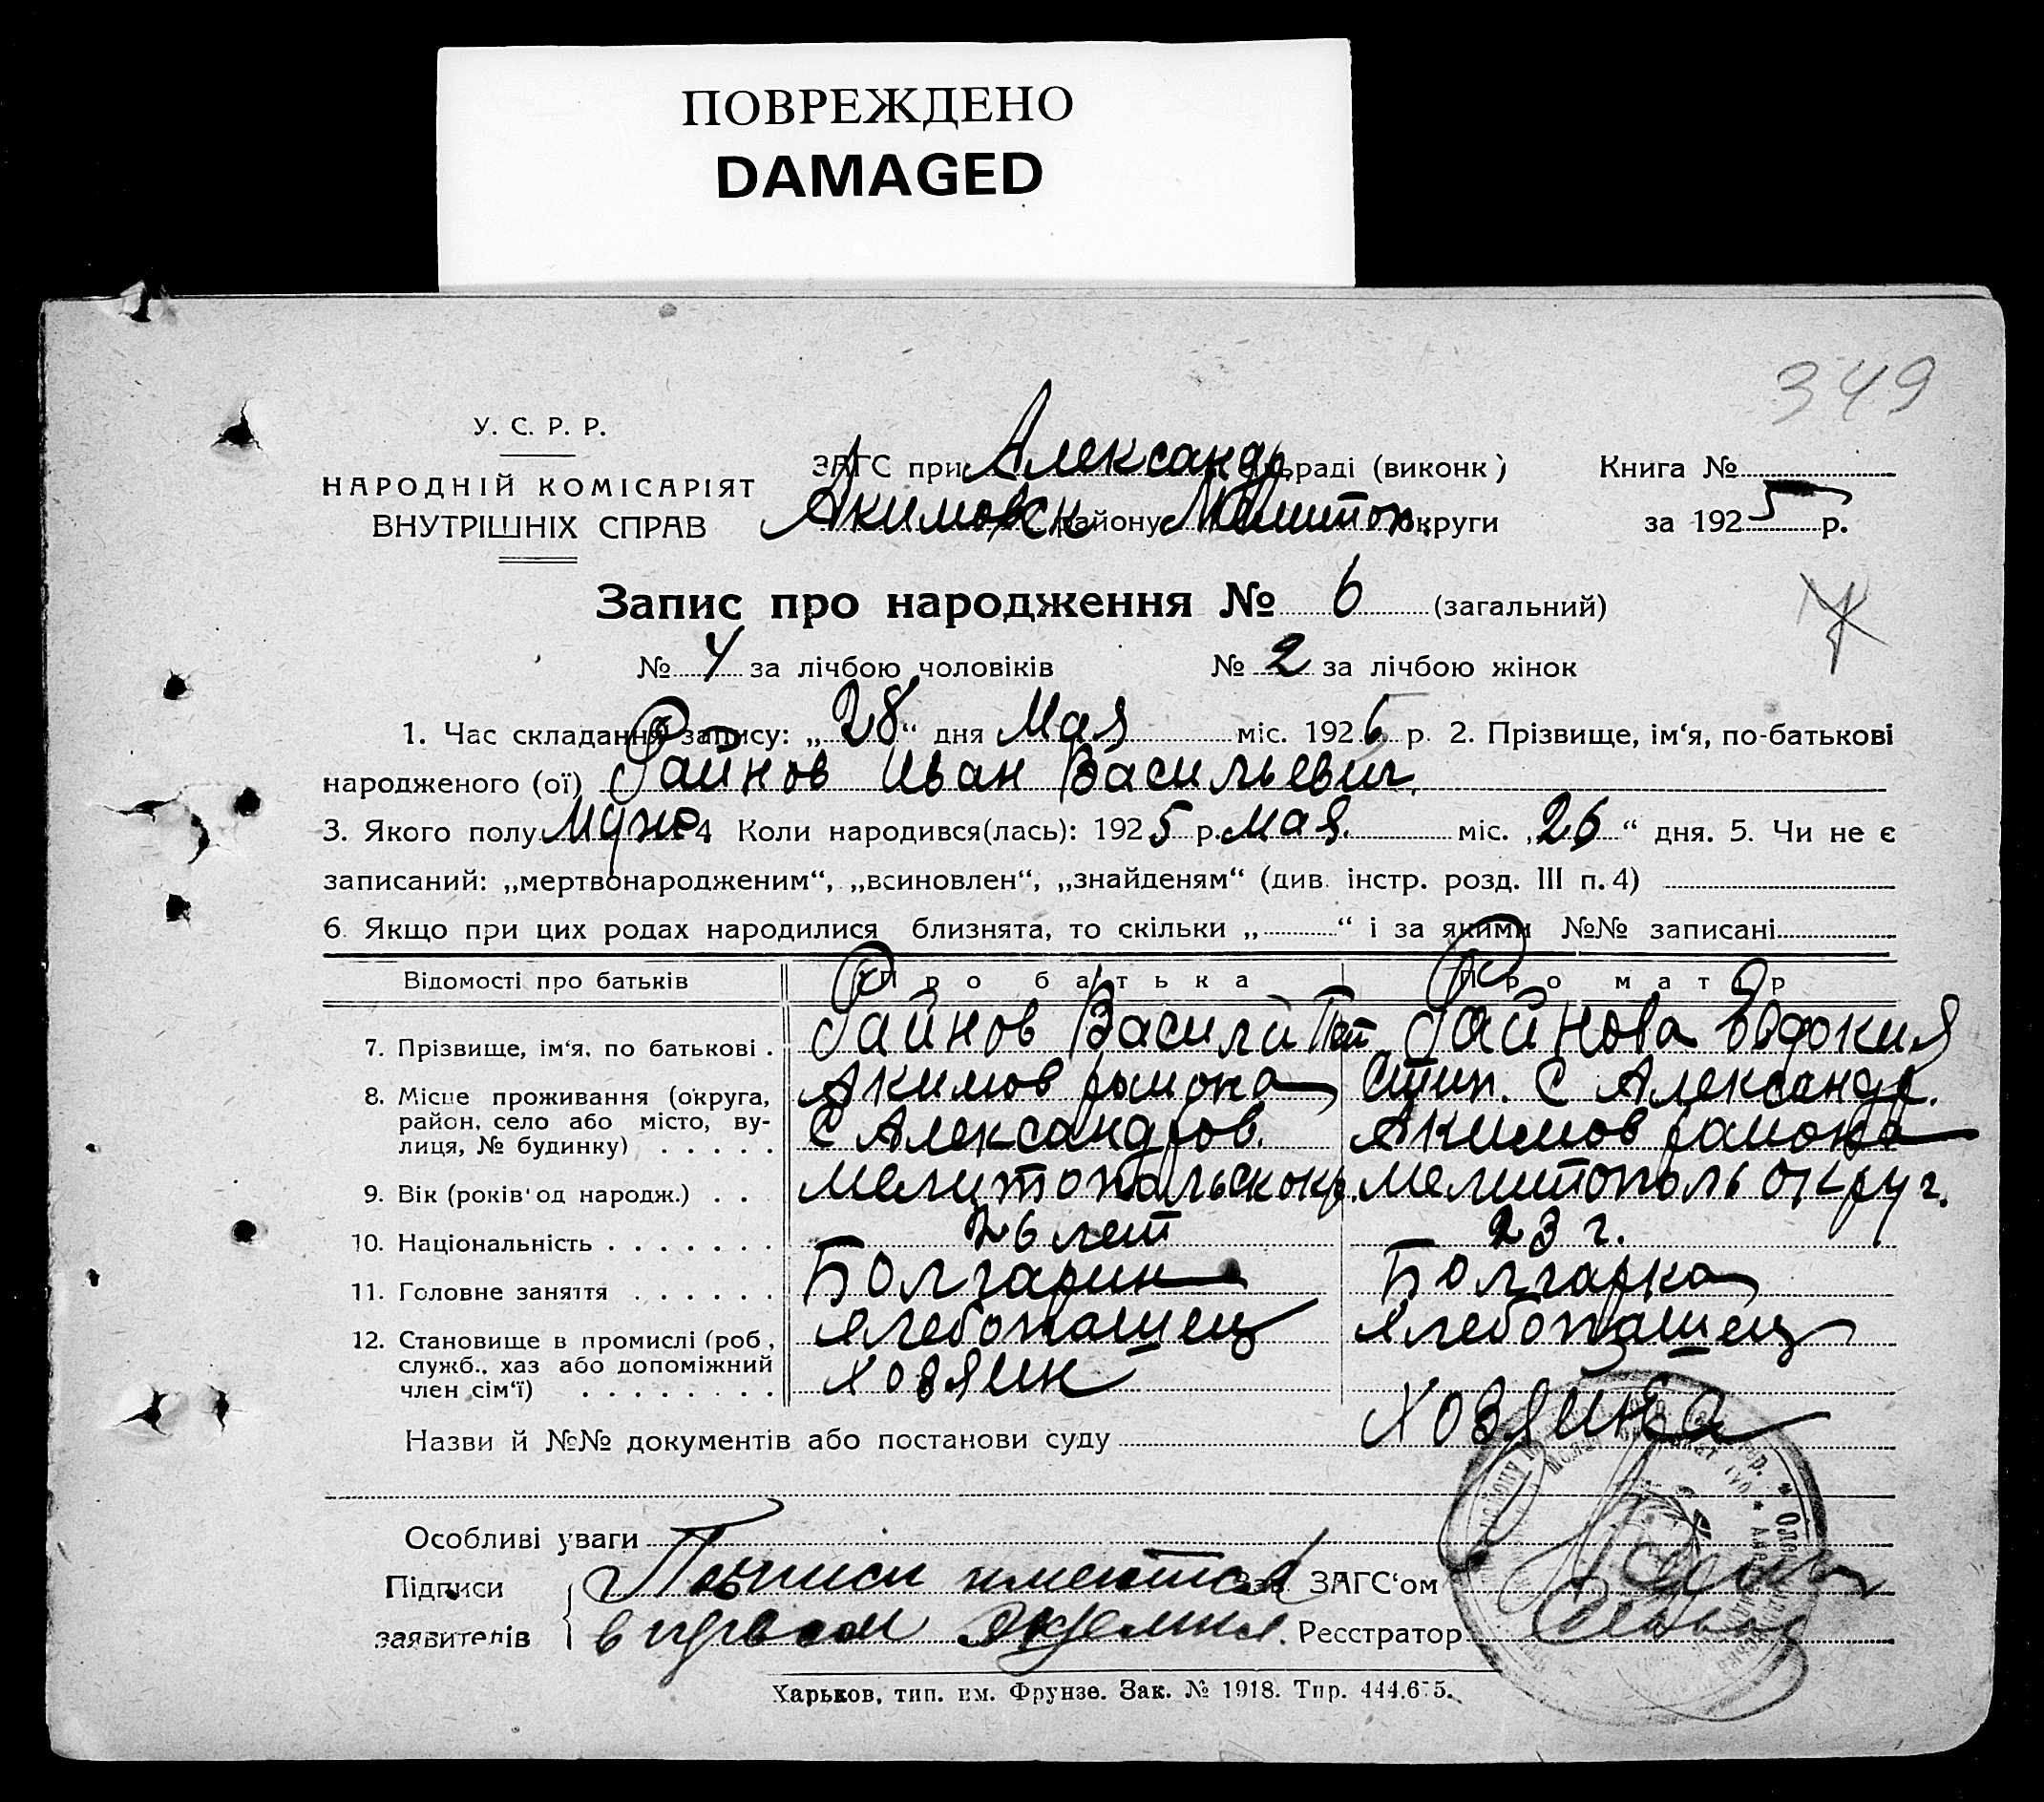 ПОВРЕЖДЕНО
DAMAGED
349
У. С. Р. Р.
НАРОДНІЙ КОМІСАРІЯТ
ВНУТРІШНІХ СПРАВ
ЗАГС при Александр. раді (виконк) Книга №
Акимовск району Мелитоп. округи за 1925 р.
Запис про народження № 6 (загальний)
№ 4 за лічбою чоловіків № 2 за лічбою жінок
1. Час складання запису: „28“ дня Мая міс. 1926 р. 2. Прізвище, ім‘я, по-батькові
народженого (ої) Райнов Иван Васильевич.
3. Якого полу Муж. 4 Коли народився(лась): 1925 р. мая. міс. „26“ дня. 5. Чи не є
записаний: „мертвонародженим“, „всиновлен“, „знайденям“ (див. інстр. розд. III п. 4)
6. Якщо при цих родах народилися близнята, то скільки „ “ і за якими №№ записані
Відомості про батьків Про батька Про матір
7. Прізвище, ім‘я, по батькові . Райнов Василий Пет Райнова Евдокия
8. Місце проживання (округа, Акимов района Степ. С Александр.
район, село або місто, ву- С Александров. Акимов района
лиця, № будинку) . . . . .
9. Вік (років од народж.) . . . Мелитопольск окр. Мелитополь округ.
10. Національність . . . . . . . 26 лет 23 г.
11. Головне заняття . . . . . . Болгарин Болгарка
12. Становище в промислі (роб, хлебопашец хлебопашец
служб., хаз або допоміжний Хозяин
член сім‘ї) . . . . . . . .
Хозяйка
Назви й №№ документів або постанови суду
Особливі уваги
Підписи Подписи имеются Зав. ЗАГС‘ом
заявителів в первом экземпл. Реєстратор
Харьков, тип. им. Фрунзе. Зак. № 1918. Тир. 444.675.